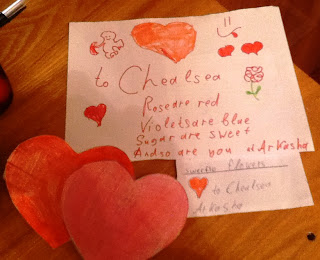 to Chealsea
Roseare red
Violetsare blue
Sugar are sweet
And so are you
Arkasha
flowers
to Chealsea
Arkasha